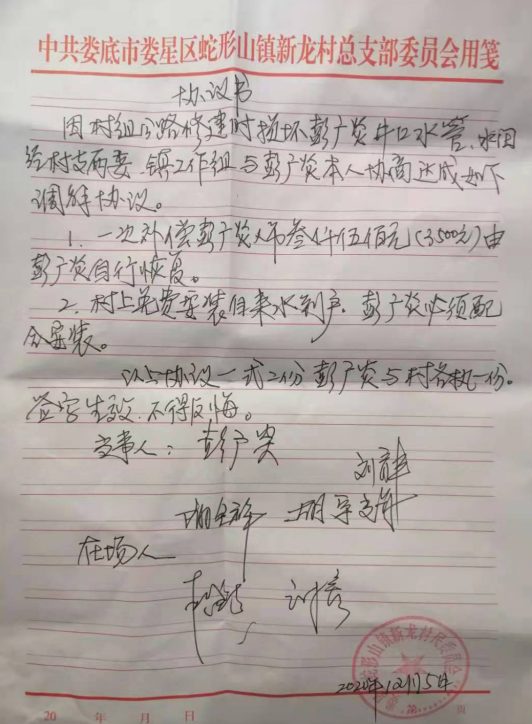 中共娄底市娄星区蛇形山镇新龙村总支部委员会用笺
协议书
因村组公路修建时损坏彭广炎井口水管、水田
经村支两委、镇工作组与彭广炎本人协商达成如下
调解协议。
1. 一次补偿彭广炎人币叁仟伍佰元(3500元)由
彭广炎自行恢复。
2. 村上免费安装自来水到户，彭广炎必须配
合安装。
以上协议一式二份彭广炎与村各执一份。
签字生效 不得反悔。
当事人：彭广炎
在场人
2020年12月5日
20 年 月 日
第 页